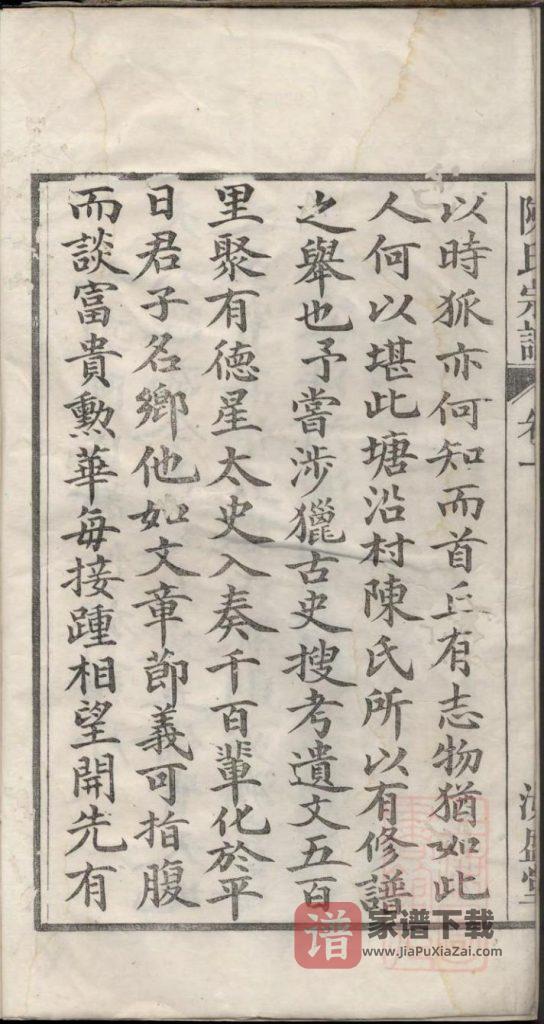 陳氏宗譜 卷一
以時狐亦何知而首丘有志物猶如此
人何以堪此塘沿村陳氏所以有修譜
之舉也予嘗涉獵古史搜考遺文五百
里聚有德星太史入奏千百軰化於平
日君子名鄉他如文章節義可指腹
而談富貴勲華每接踵相望開先有
谱 家谱下载
www.JiaPuXiaZai.com